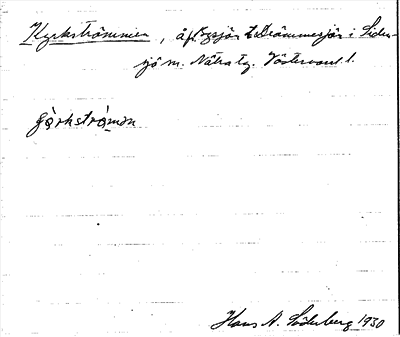 Kyrkströmmen, å fr. Bysjön t. Drömmesjön i Siden-
sjö m. Nätra tg. Västernorrl. l.
Hans A. Söderberg 1930